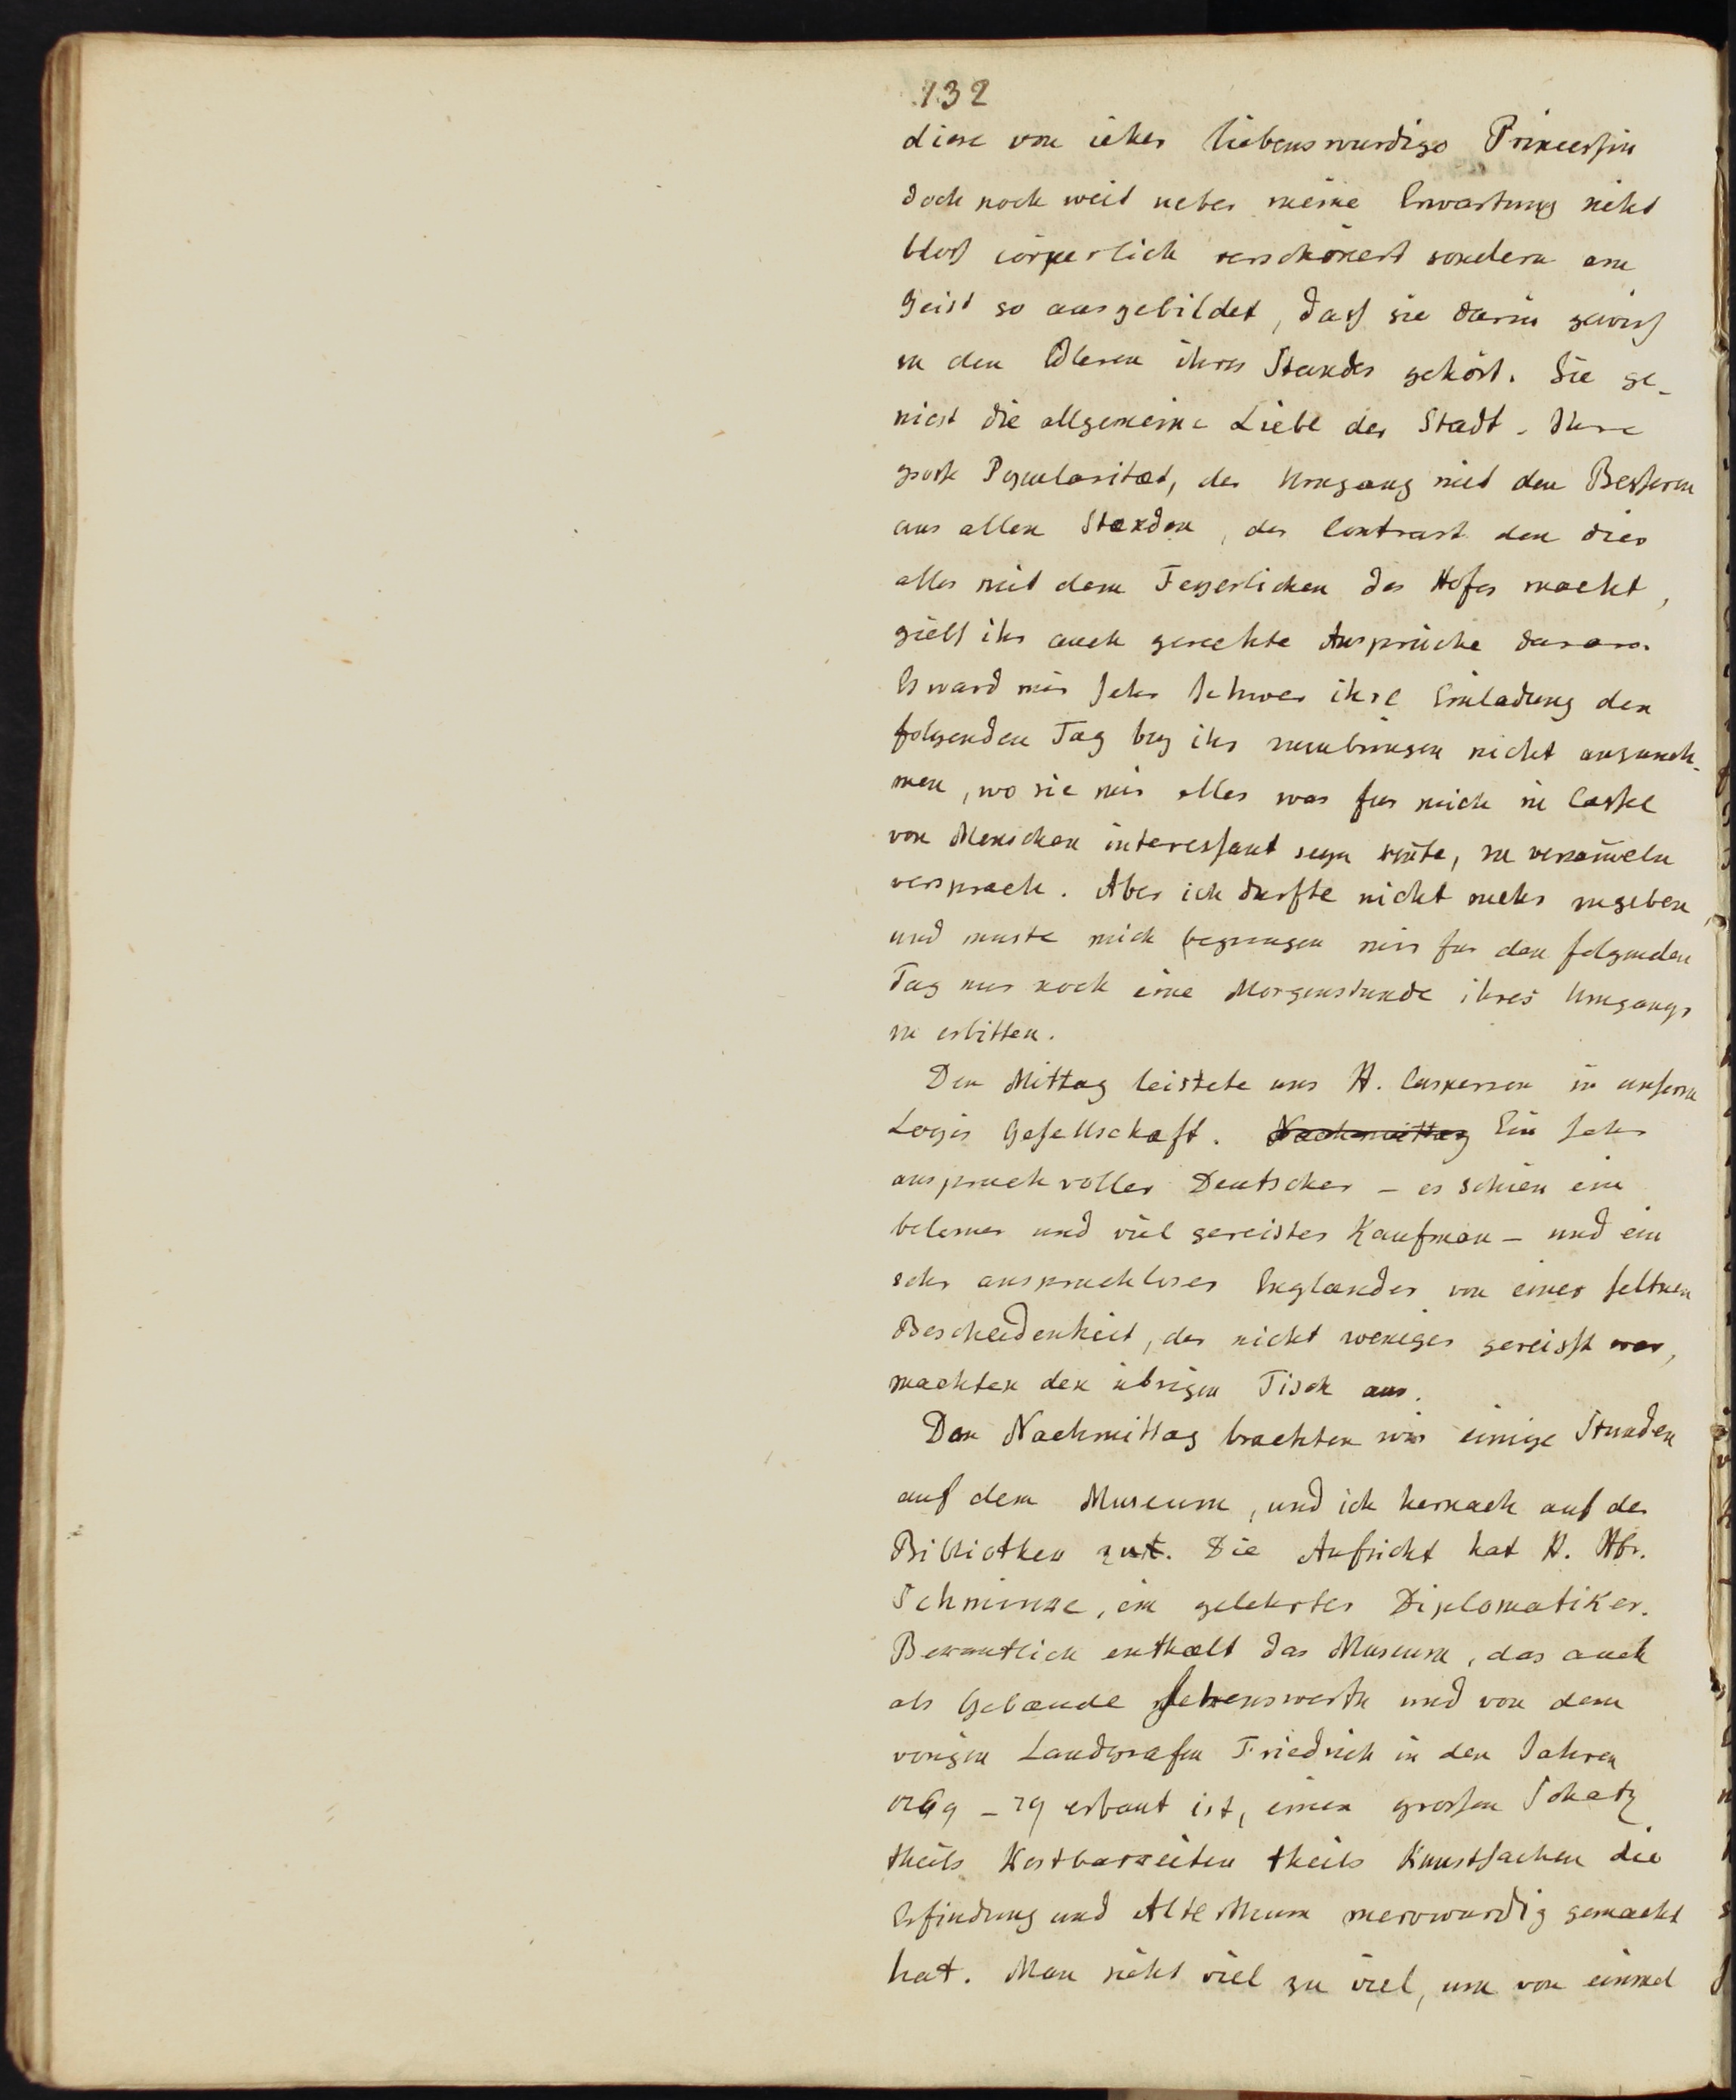 132
diese von ieher liebenswurdige Princessin
doch noch weit ueber meine Erwartung nicht
blos cörperlich verschönert sondern am
Geist so ausgebildet, dass sie darin gewiss
zu den Edleren ihres Standes gehört. Sie ge-
niest die allgemeine Liebe der Stadt. Ihre
grosse Popularitaet, der Umgang mit den Besseren
aus allen Staenden, der Contrast den dies
alles mit dem Feyerlichen des Hofes macht,
giebt ihr auch gerechte Ansprüche daran.
Es ward mir sehr schwer ihre Einladung den
folgenden Tag bey ihr zuzubringen nicht anzuneh-
men, wo sie mir alles was fur mich in Cassel
von Menschen interessant seyn könte, zu versam̄eln
versprach. Aber ich durfte nicht mehr zugeben
und muste mich begnügen mir fur den folgenden
Tag nur noch eine Morgenstunde ihres Umgangs
zu erbitten.
Den Mittag leistete uns H. Casperson in unserm
Logis Gesellschaft. Nachmittag Ein sehr
anspruchvoller Deutscher – es schien ein
belesner und viel gereister Kaufman – und ein
sehr anspruchloser Englaender von einer seltnen
Bescheidenheit, der nicht weniger gereisst war,
machten den übrigen Tisch aus.
Den Nachmittag brachten wir einige Stunden
auf dem Museum, und ich hernach auf der
Bibliothek zu. Die Aufsicht hat H. Hfr.
Schminke, ein gelehrter Diplomatiker.
Bekantlich enthaelt das Museum, das auch
als Gebaeude sehenswerth und von dem
vorigen Landgrafen Friedrich in den Jahren
1769 – 79 erbaut ist, einen grossen Schatz
theils Kostbarkeiten theils Kunstsachen die
Erfindung und Alterthum merkwurdig gemacht
hat. Man sieht viel zu viel, um von einmal